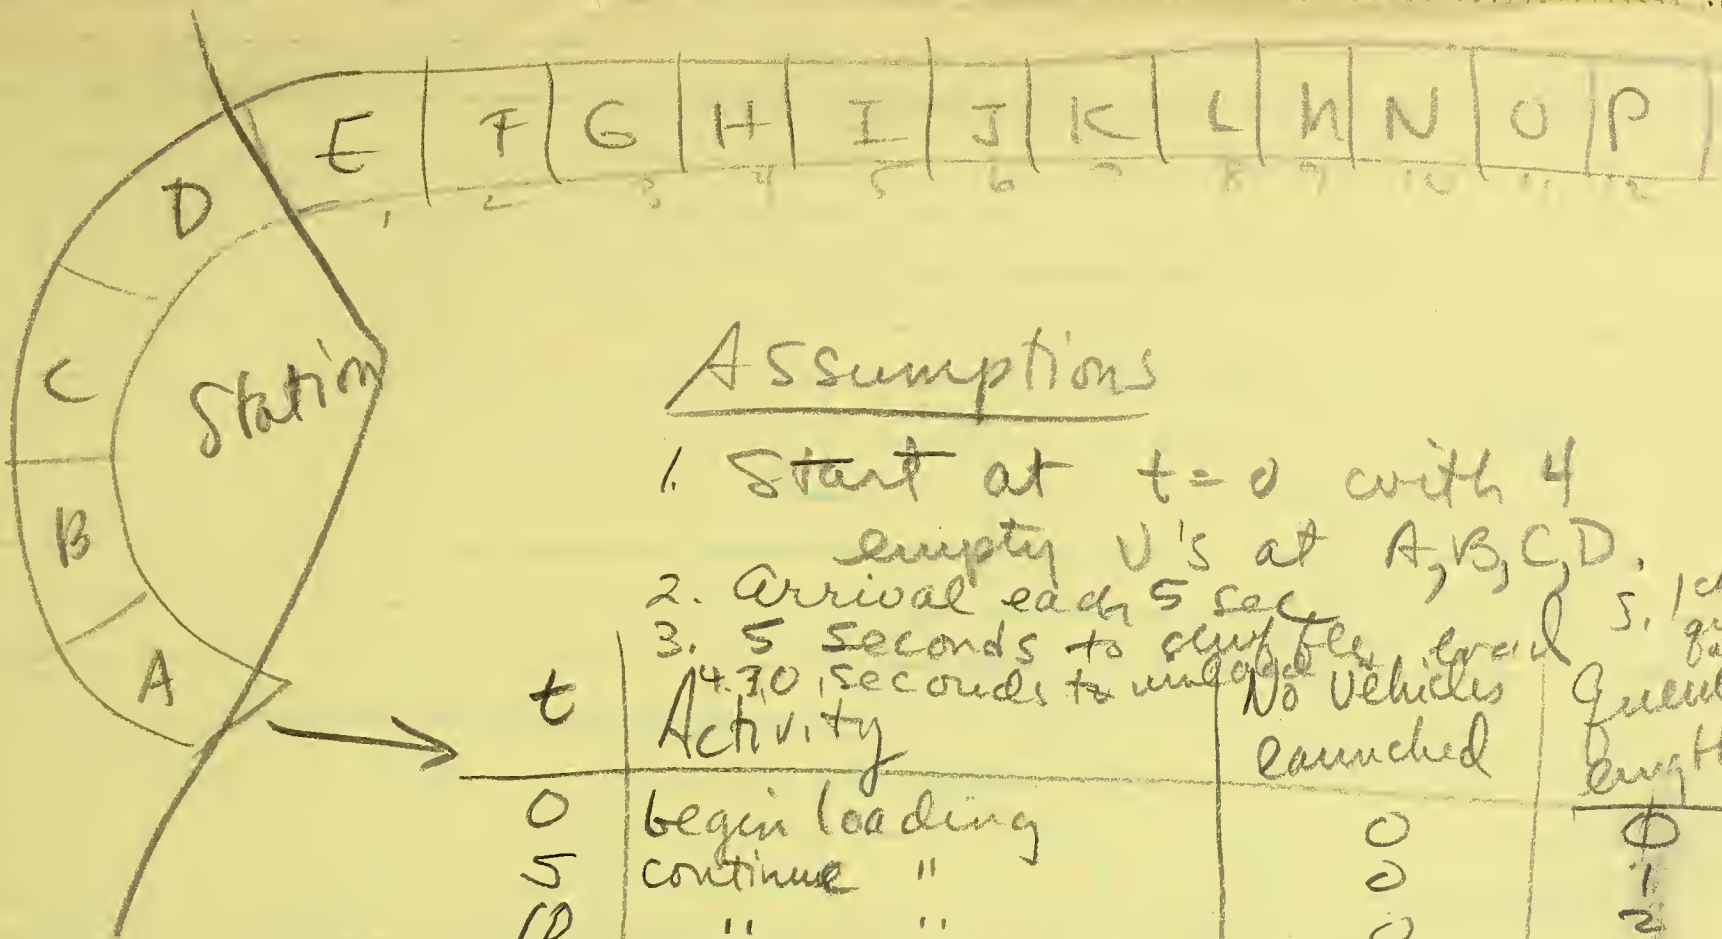 E F G H I J K L M N O P
1 2 3 4 5 6 7 8 9 10 11 12
D
C
B
A
Station
Assumptions
1. Start at t=0 with 4
empty V's at A, B, C, D.
2. Arrival each 5 sec
3. 5 seconds to
4. 30 seconds to unload
5. 1
t Activity No Vehicles launched
0 begin loading 0 0
5 continue " 0 1
10 " " 0 2